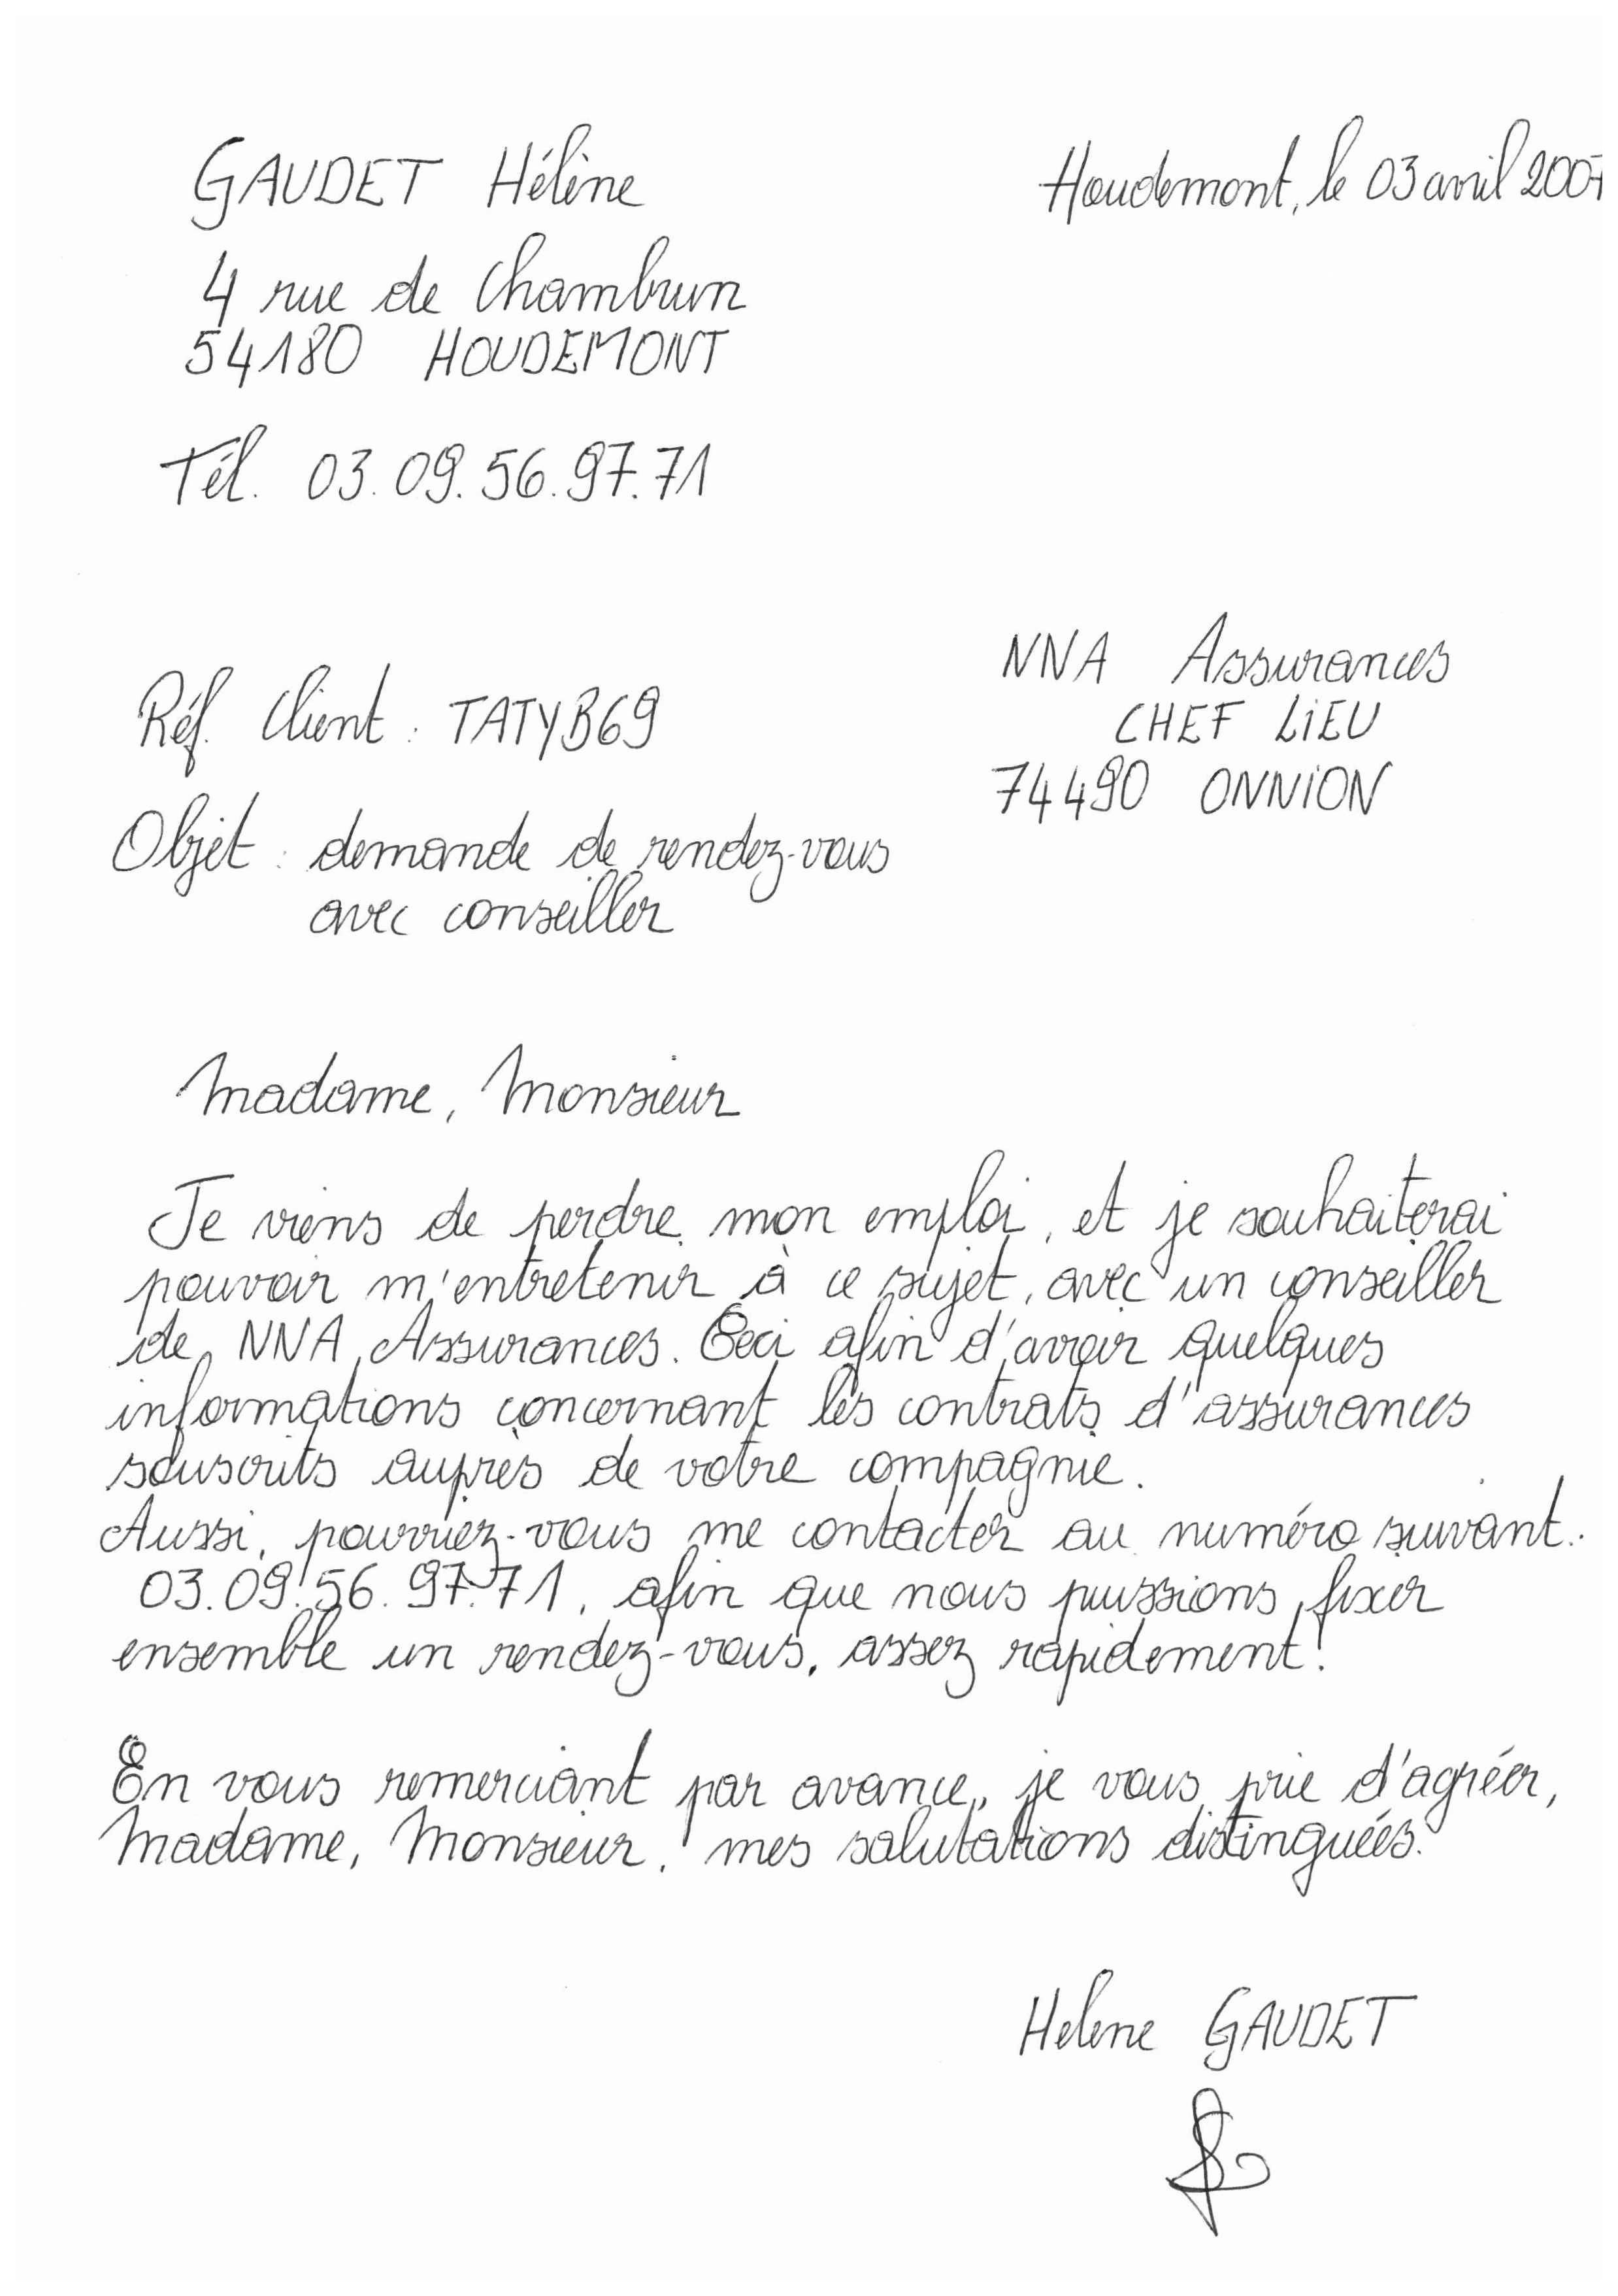 GAUDET Hélène
Houdemont, le 03 avril 2007
4 rue de Chambrun
54180 HOUDEMONT
Tél. 03.09.56.97.71
NNA Assurances
CHEF LIEU
74490 ONNION
Réf. Client : TATYB69
Objet : demande de rendez-vous
avec conseiller
Madame, Monsieur
Je viens de perdre mon emploi, et je souhaiterai
pouvoir m'entretenir à ce sujet, avec un conseiller
de NNA Assurances. Ceci afin d'avoir quelques
informations concernant les contrats d'assurances
souscrits auprès de votre compagnie.
Aussi, pourriez-vous me contacter au numéro suivant :
03.09.56.97.71, afin que nous puissions fixer
ensemble un rendez-vous, assez rapidement.
En vous remerciant par avance, je vous prie d'agréer,
Madame, Monsieur, mes salutations distinguées.
Helene GAUDET